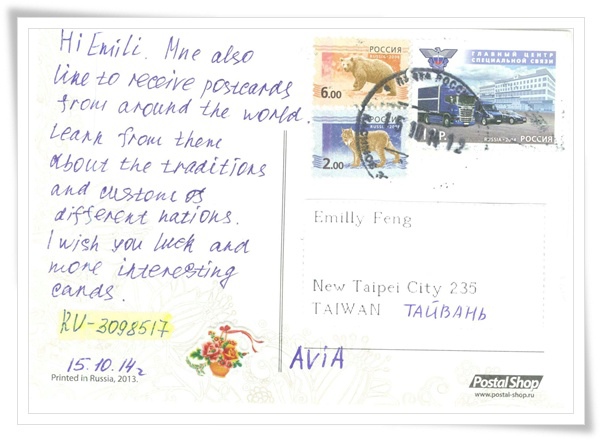 Hi Emili. Mne also
line to receive postcards
from around the world.
Learn from them
about the traditions
and customs
different nations.
I wish you luck and
more interesting
cards.
RU-3098517
15.10.14г
Printed in Russia, 2013.
РОССИЯ
RUSSIA-2014
6.00
РОССИЯ
2.00
ГЛАВНЫЙ ЦЕНТР
СПЕЦИАЛЬНОЙ СВЯЗИ
RUSSIA-2014 РОССИЯ
Emilly Feng
New Taipei City 235
TAIWAN ТАЙВАНЬ
AVIA
Postal Shop
www.postal-shop.ru